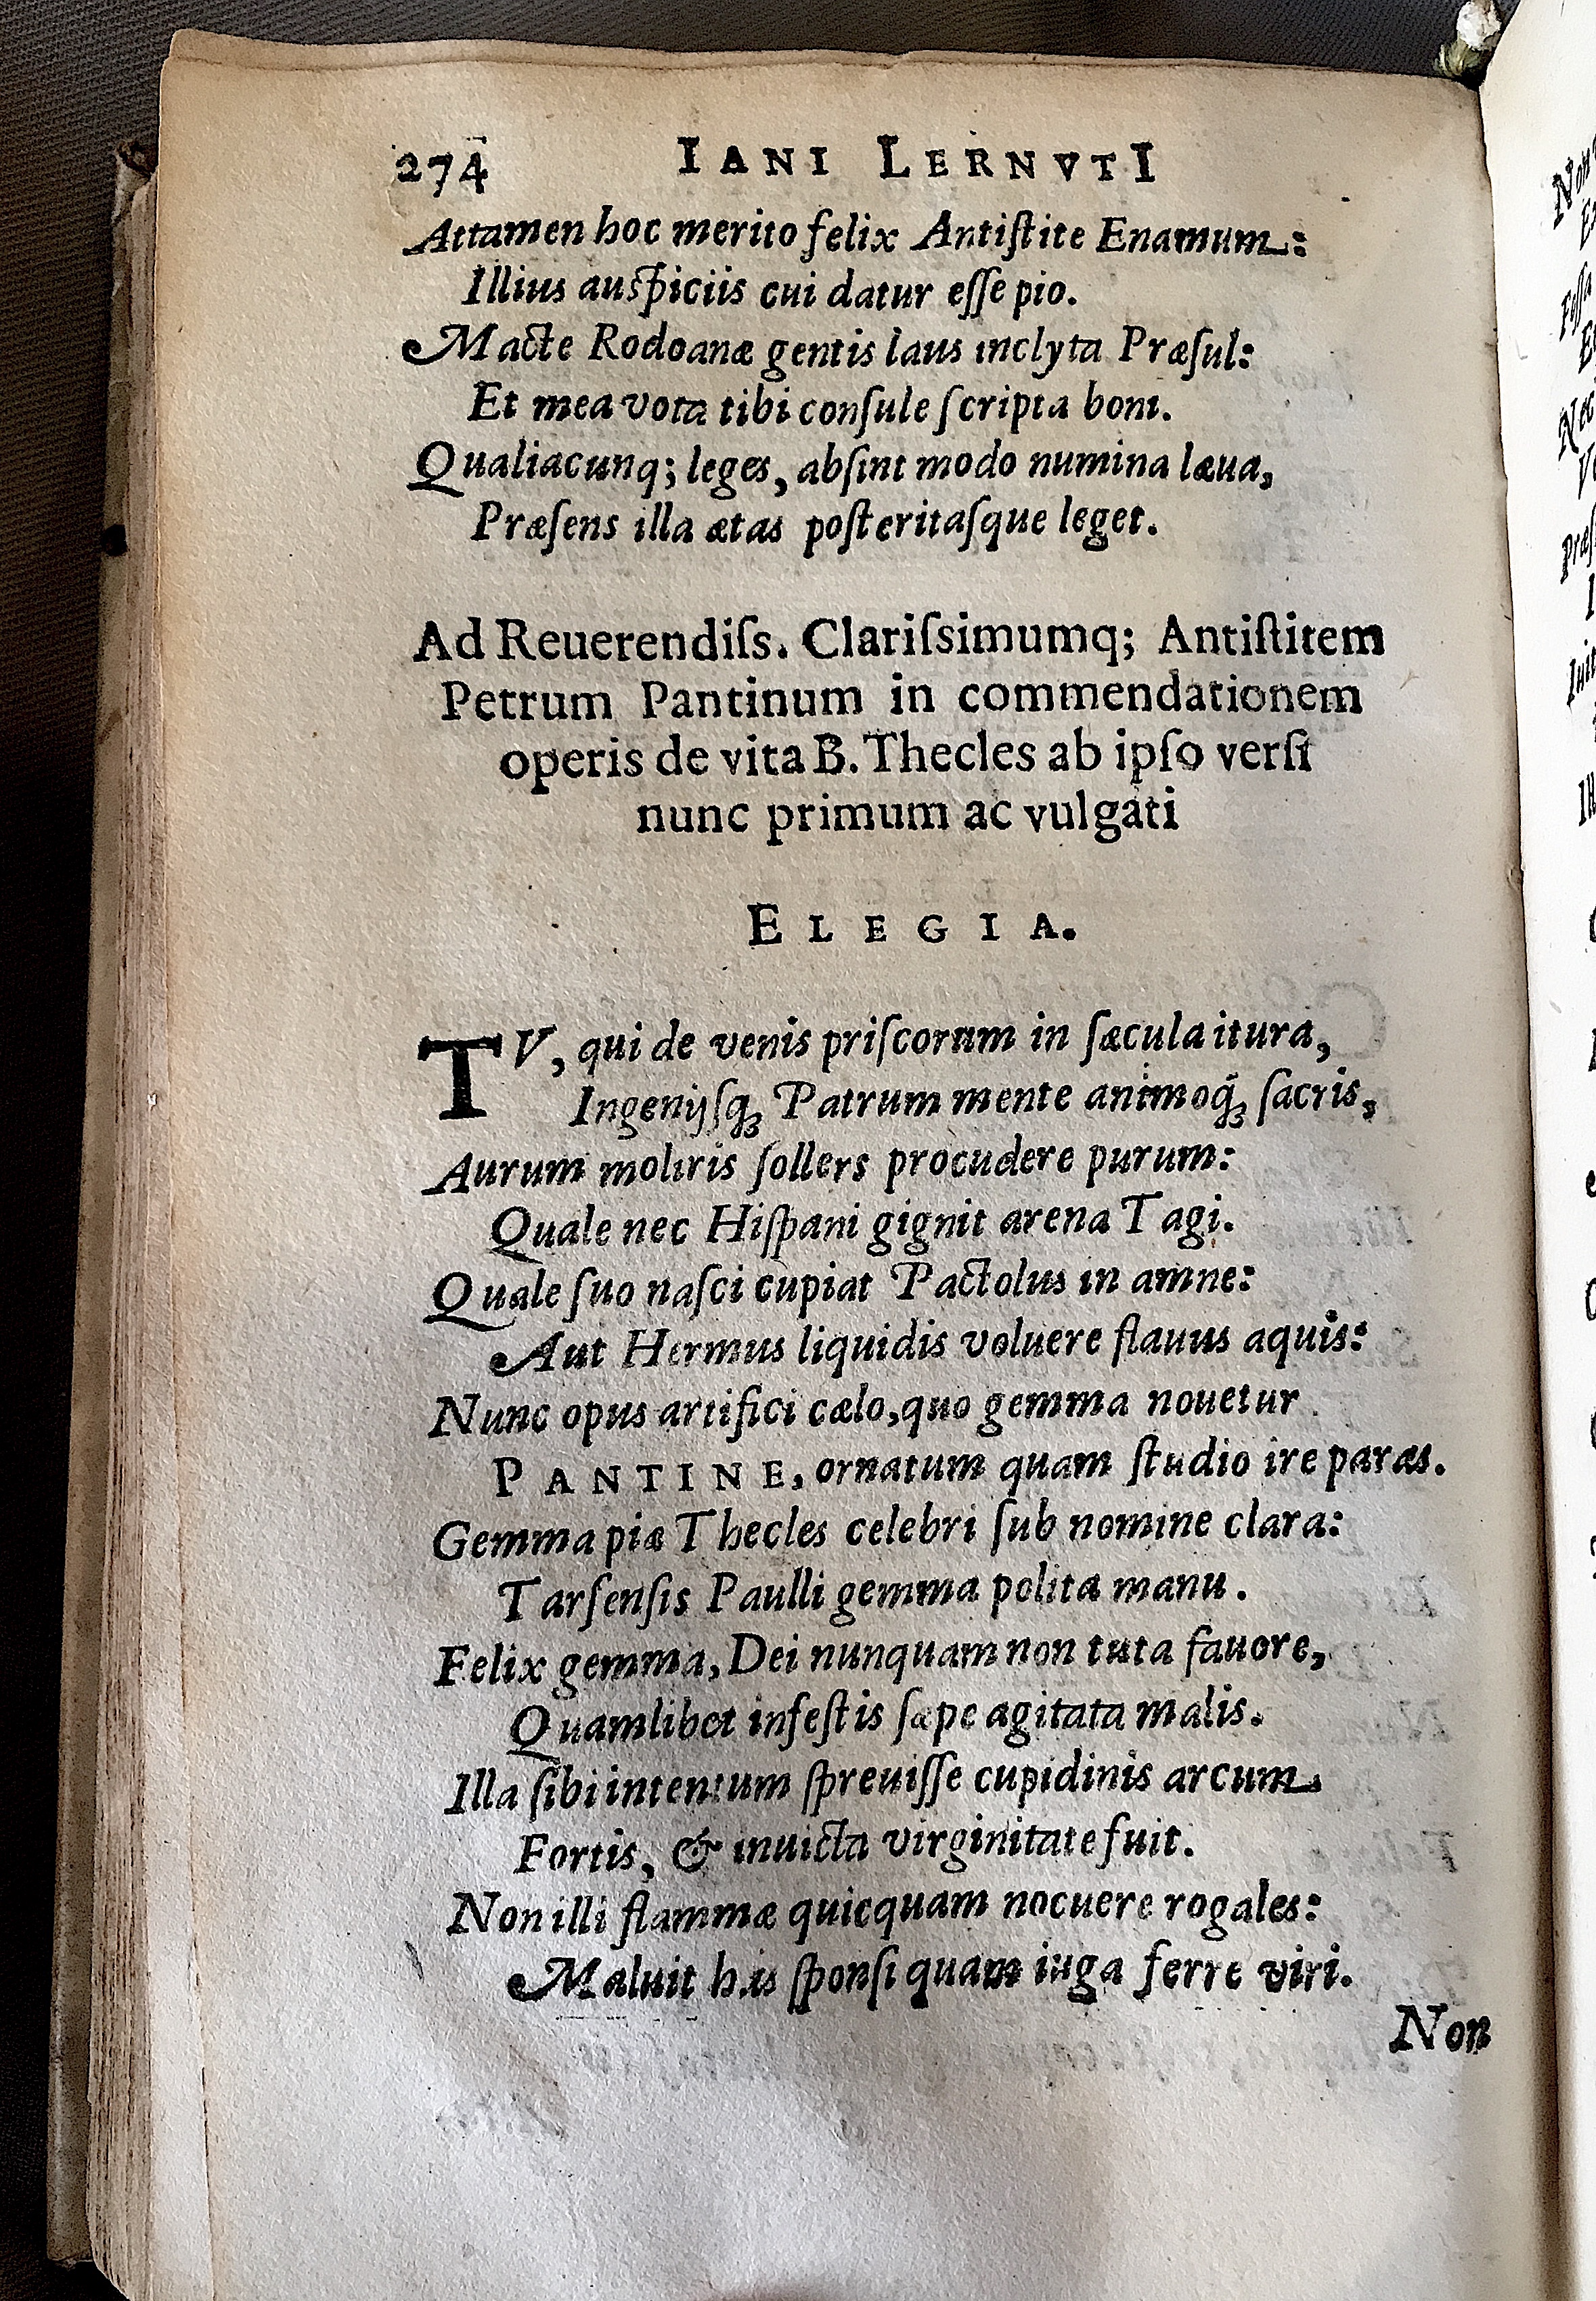 274 IANI LERNVTI
Attamen hoc merito felix Antiſtite Enamum:
Illius auſpiciis cui datur eſſe pio.
Macte Rodoanæ gentis laus inclyta Præſul:
Et mea vota tibi conſule ſcripta boni.
Qualiacunq; leges, abſint modo numina læua,
Præſens illa ætas poſteritaſque leget.
Ad Reuerendiſs. Clariſsimumq; Antiſtitem
Petrum Pantinum in commendationem
operis de vita B. Thecles ab ipſo verſi
nunc primum ac vulgati
ELEGIA.
TV, qui de venis priſcorum in ſæcula itura,
Ingenijſq; Patrum mente animoq; ſacris,
Aurum moliris ſollers procudere purum:
Quale nec Hiſpani gignit arena Tagi.
Quale ſuo naſci cupiat Pactolus in amne:
Aut Hermus liquidis voluere flauus aquis:
Nunc opus artifici cælo, quo gemma nouetur
PANTINE, ornatum quam ſtudio ire paras.
Gemma piæ Thecles celebri ſub nomine clara:
Tarſenſis Paulli gemma polita manu.
Felix gemma, Dei nunquam non tuta fauore,
Quamlibet infeſtis ſæpe agitata malis.
Illa ſibi intentum ſpreuiſſe cupidinis arcum
Fortis, & inuicta virginitate fuit.
Non illi flammæ quicquam nocuere rogales:
Maluit his ſponſi quam iuga ferre viri.
Non